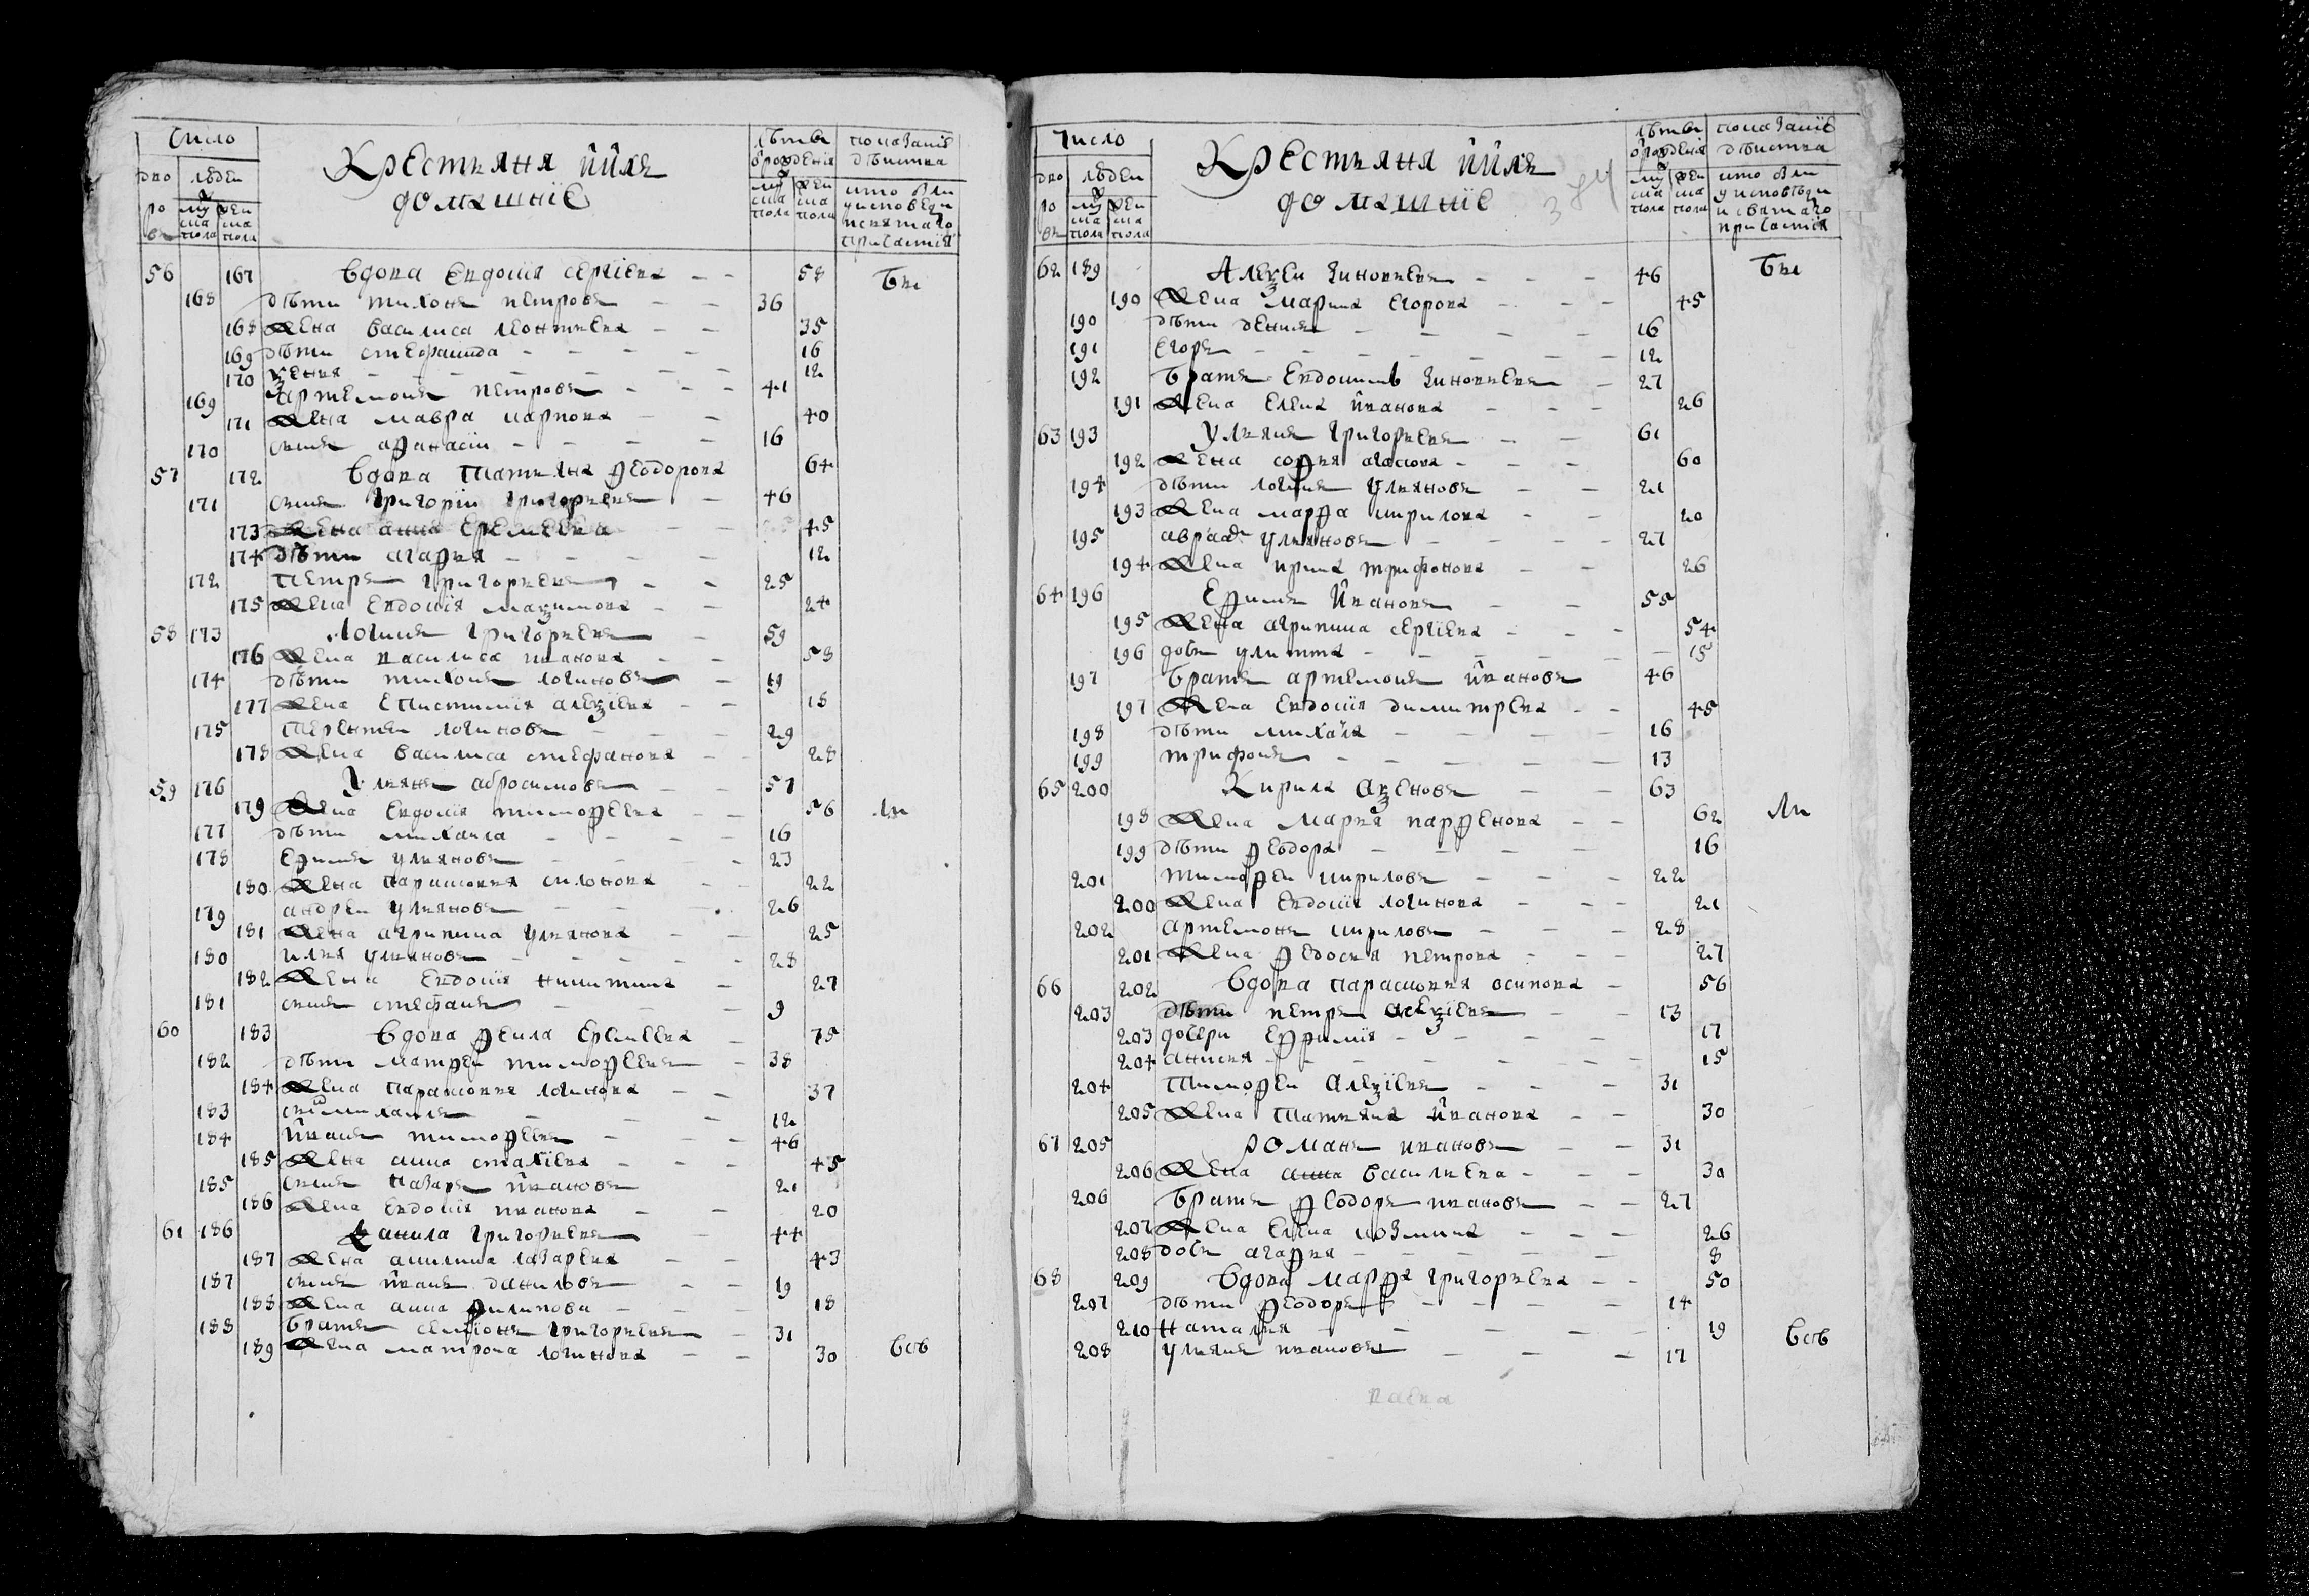 Число
Крестьяня ихъ
домашнiе
лѣта
от рожденiя
показанiе
дѣиства
дво
ро
въ
людеи
муска пола
женска пола
муска пола
женска пола
кто был
у исповеди
и святаго
причастiя
56 167 вдова евдокiя сергiева 58 бы
168 дѣти тихонъ петровъ 36
168 жена василиса леонтьева 35
169 дѣти стефанида 16
170 ѯения 12
169 артемонъ петровъ 41
171 жена мавра карпова 40
170 сынъ афанасiи 16
57 172 вдова татьяна феодорова 64
171 сынъ григорiи григорьевъ 46
173 жена анна еремеева 45
174 дѣти агафья 12
172 петръ григорьевъ 25
175 жена евдокiя маѯимова 24
58 173 логинъ григорьевъ 59
176 жена василиса иванова 58
174 дѣти тихонъ логиновъ 19
177 жена епистимiя алеѯiева 18
175 терентеи логиновъ 29
178 жена василиса стефанова 28
59 176 ульянъ абросимовъ 57
179 жена евдокiя тимофеева 56 ли
177 дѣти михаила 16
178 ефимъ ульяновъ 23
180 жена парасковья силонова 22
179 андреи ульяновъ 26
181 жена агрипина ульянова 25
180 илья ульяновъ 28
182 жена евдокiя никитина 27
181 сынъ стефанъ 9
60 183 вдова фекла еремеева 75
182 дѣти матфеи тимофеевъ 38
184 жена парасковья логинова 37
183 сынъ михаилъ 12
184 иванъ тимофеевъ 46
185 жена анна стахiева 45
185 сынъ назаръ ивановъ 21
186 жена евдокiя иванова 20
61 186 данила григорьевъ 44
187 жена акилина лазарева 43
187 сынъ иванъ даниловъ 19
188 жена анна филипова 18
188 братъ симионъ григорьевъ 31
189 жена матрона логинова 30 всѣ
Число
Крестьяня ихъ
домашнiе
лѣта
от рожденiя
показанiе
дѣиства
дво
ро
въ
людеи
муска пола
женска пола
муска пола
женска пола
кто был
у исповѣди
и святаго
причастiя
62 189 Алеѯеи зиновьевъ 46 бы
190 жена марина егорова 45
190 дѣти денисъ 16
191 егоръ 12
192 братъ евдокимъ зиновьевъ 27
191 жена елена иванова 26
63 193 ульянъ григорьевъ 61
192 жена софья агапова 60
194 дѣти логинъ ульяновъ 21
193 жена марфа кирилова 20
195 ульяновъ 27
194 жена ирина трифонова 26
64 196 ефимъ ивановъ 55
195 жена агрипина сергiева 54
196 дочь улитта 15
197 братъ артемонъ ивановъ 46
197 жена евдокiя димитрева 45
198 дѣти михаила 16
199 трифонъ 13
65 200 Кирила аѯеновъ 63
198 жена марья парфенова 62 ли
199 дѣти феодора 16
201 тимофеи кириловъ 22
200 жена евдокiя логинова 21
202 артемонъ кириловъ 28
201 жена федосья петрова 27
66 202 вдова парасковья осипова 56
203 дѣти петръ алеѯiевъ 13
203 дочери ефримiя 17
204 анисья 15
204 тимофеи алеѯiевъ 31
205 жена татьяна иванова 30
67 205 романъ ивановъ 31
206 жена анна васильева 30
206 братъ феодоръ ивановъ 27
207 жена елена козмина 26
208 дочь агафья 8
68 209 вдова марфа григорьева 50
207 дѣти феодоръ 14
210 наталья 19
208 ульянъ ивановъ 17 всѣ